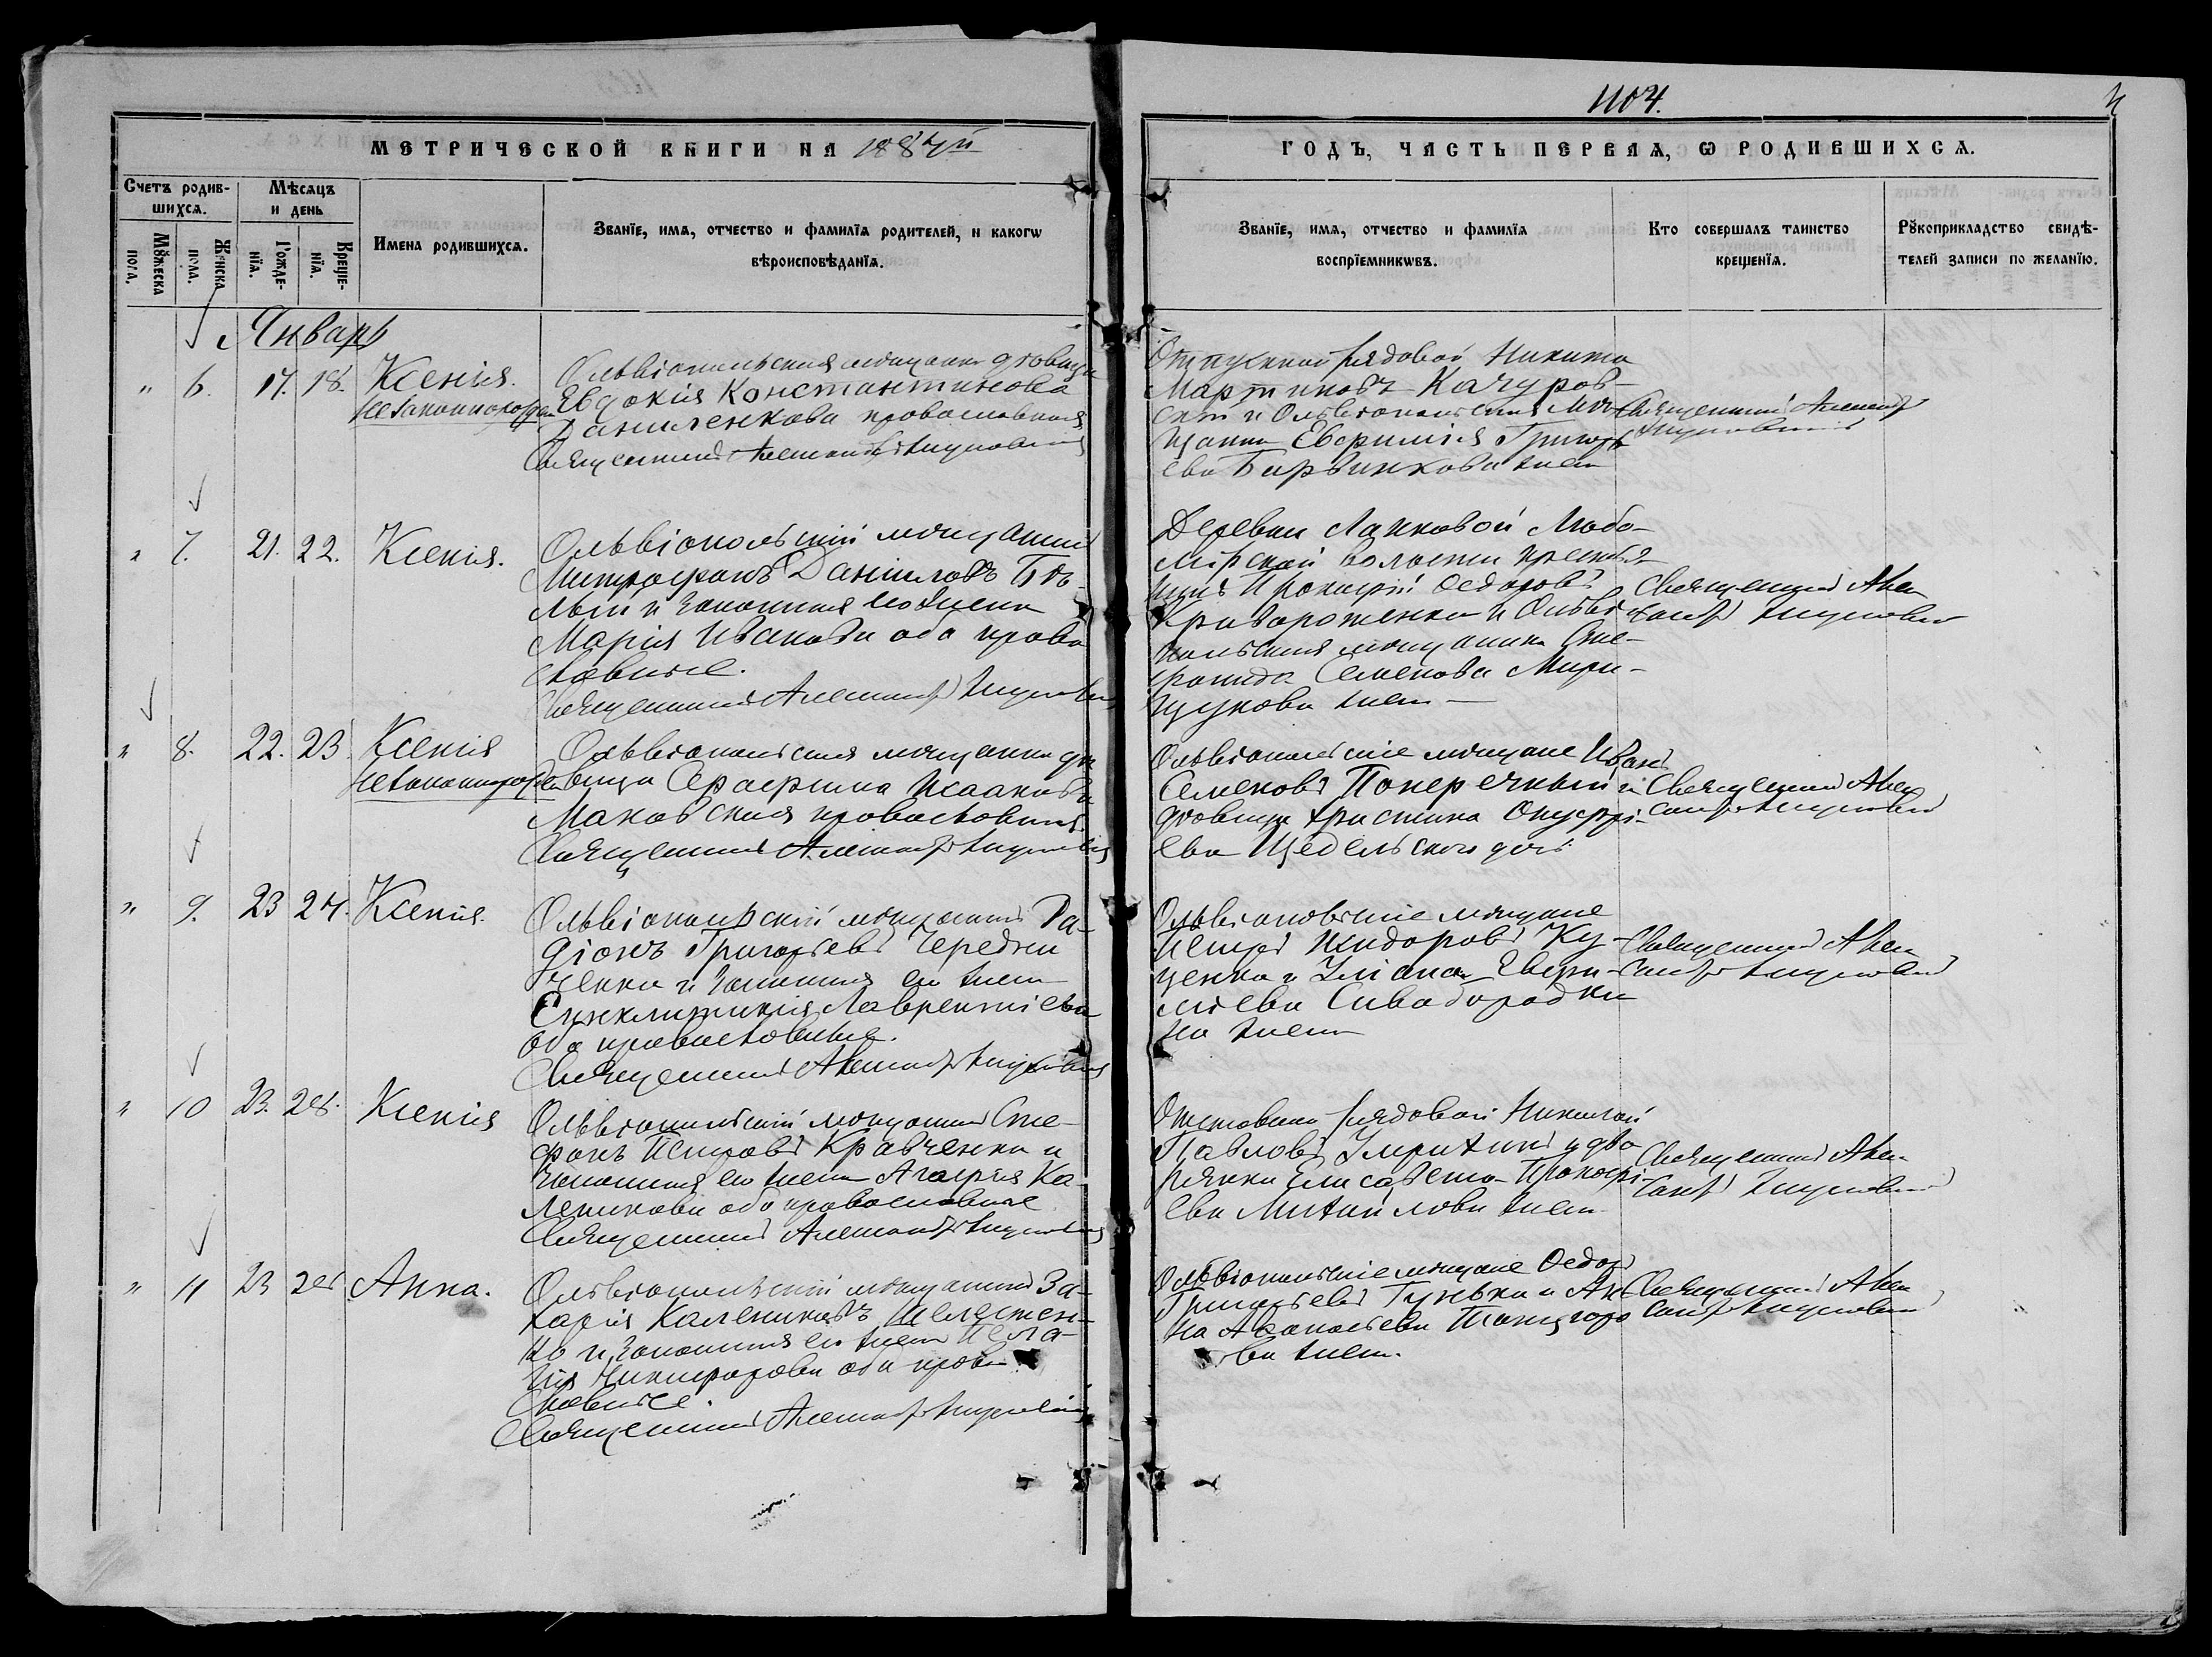 1104.
МЕТРИЧЕСКОЙ КНИГИ НА 1884й
ГОДЪ, ЧАСТЬ ПЕРВАЯ, Ѡ РОДИВШИХСѦ.
Счетъ родив-
шихсѧ.
Мѣсѧцъ
и день
Мꙋжеска
пола.
Женска
пола.
Рожде-
нїѧ.
Креще-
нїѧ.
Имена родившихсѧ.
Званїе, имѧ, отчество и фамилїѧ родителей, и какогѡ
вѣроисповѣданїѧ.
Званїе, имѧ, отчество и фамилїѧ
воспрїемникѡвъ.
Кто совершалъ таинство
крещенїѧ.
Рꙋкоприкладство свидѣ-
телей записи по желанїю.
Январь
" 6. 17. 18. Ксенія.
Незаконнорожден
Ольвіопольская мѣщанка дѣвица
Евдокія Константинова
Даниленкова православная
Священникъ Александръ
Отпускной рядовой Никита
Мартиновъ Качуров-
скій и Ольвіопольская мѣ-
щанка Евфимія Григорь
ева Барвинкова
Священникъ Александръ
" 7. 21. 22. Ксенія.
Ольвіопольскій мѣщанинъ
Митрофанъ Даніиловъ Бѣ-
лый и законная его жена
Марія Иванова оба право
славные.
Священникъ Александръ
Деревни Лакковой Любо-
мірской волости крестья
нинъ Прокофій Ѳедоровъ
Криворотенко и Ольвіо
польская мѣщанка Сте-
фанида Семенова Мири-
щукова
Священникъ Алек
сандръ
" 8. 22. 23 Ксенія
Незаконнорожден
Ольвіопольская мѣщанка дѣ
вица Серафима Исаакова
Маковская православная.
Священникъ Александръ
Ольвіопольскіе мѣщане Иванъ
Семеновъ Поперечный и
дѣвица Христина Онуфрі-
ева Цедельского дочь
Священникъ Алек
сандръ
" 9. 23 24. Ксенія.
Ольвіопольскій мѣщанинъ Ра-
діонъ Григорьевъ Чередни
ченко и законная его жена
Синклитикія Лаврентіева
оба православные.
Священникъ Александръ
Ольвіопольскіе мѣщане
Петръ Исидоровъ Ку-
ценко и Уліана Евфи-
міева Сивобородки
на жена
Священникъ Алек
сандръ
" 10 23. 28. Ксенія
Ольвіопольскій мѣщанинъ Сте-
фанъ Петровъ Кравченко и
законная его жена Агафія Ка-
леникова оба православные
Священникъ Александръ
Отставной рядовой Николай
Павловъ Улрихинъ и дво
рянка Елисавета Прокофі-
ева Михайлова жена
Священникъ Алек
сандръ
" 11 23 28 Анна.
Ольвіопольскій мѣщанинъ За-
харія Калениковъ Шелестен-
ко и законная его жена Пела-
гія Никифорова оба право
славные.
Священникъ Александръ
Ольвіопольскіе мѣщане Ѳедоръ
Григорьевъ Гунько и Ан-
на Аѳанасіева
ва жена.
Священникъ Алек
сандръ